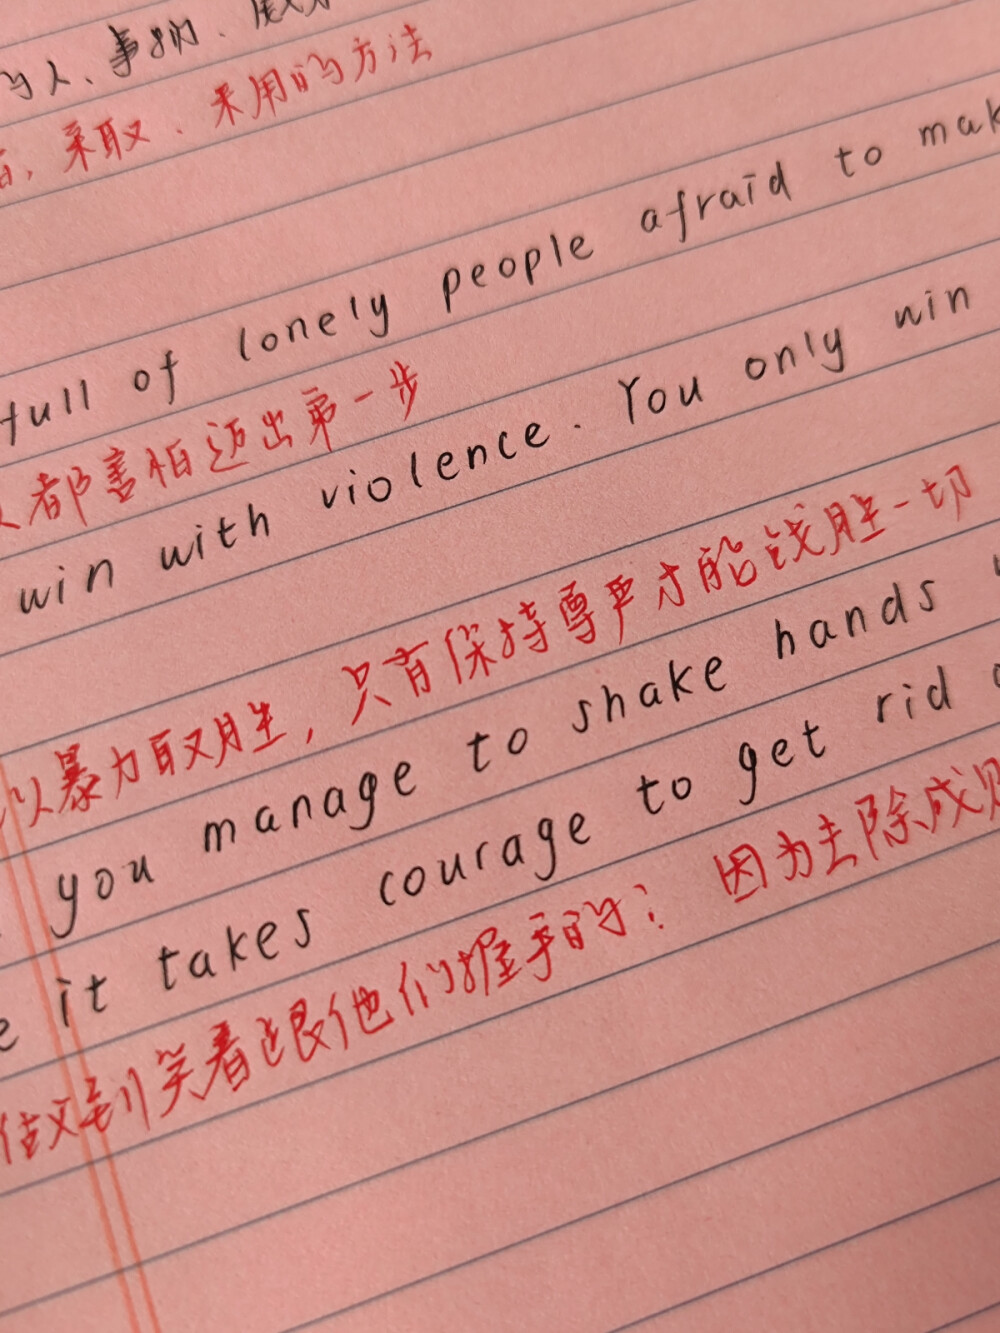 的人、事物、
采取、采用的方法
full of lonely people afraid to mak
人都害怕迈出第一步
win with violence. You only win
以暴力取胜，只有保持尊严才能战胜一切
you manage to shake hands
e it takes courage to get rid
做到笑着跟他们握手的？因为去除成见